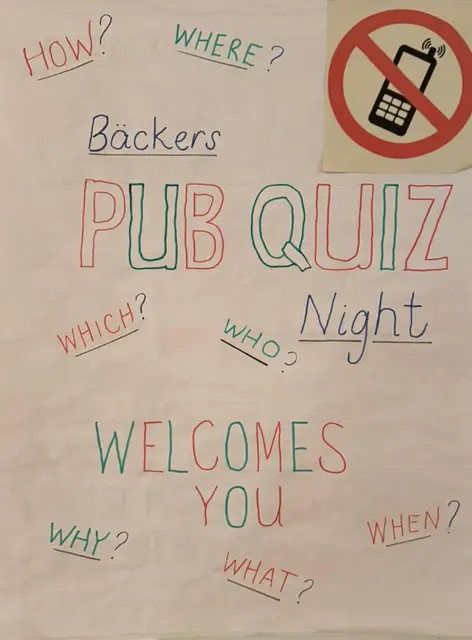 HOW?
WHERE?
Bäckers
PUB QUIZ
Night
WHICH?
WHO?
WELCOMES
YOU
WHEN?
WHY?
WHAT?